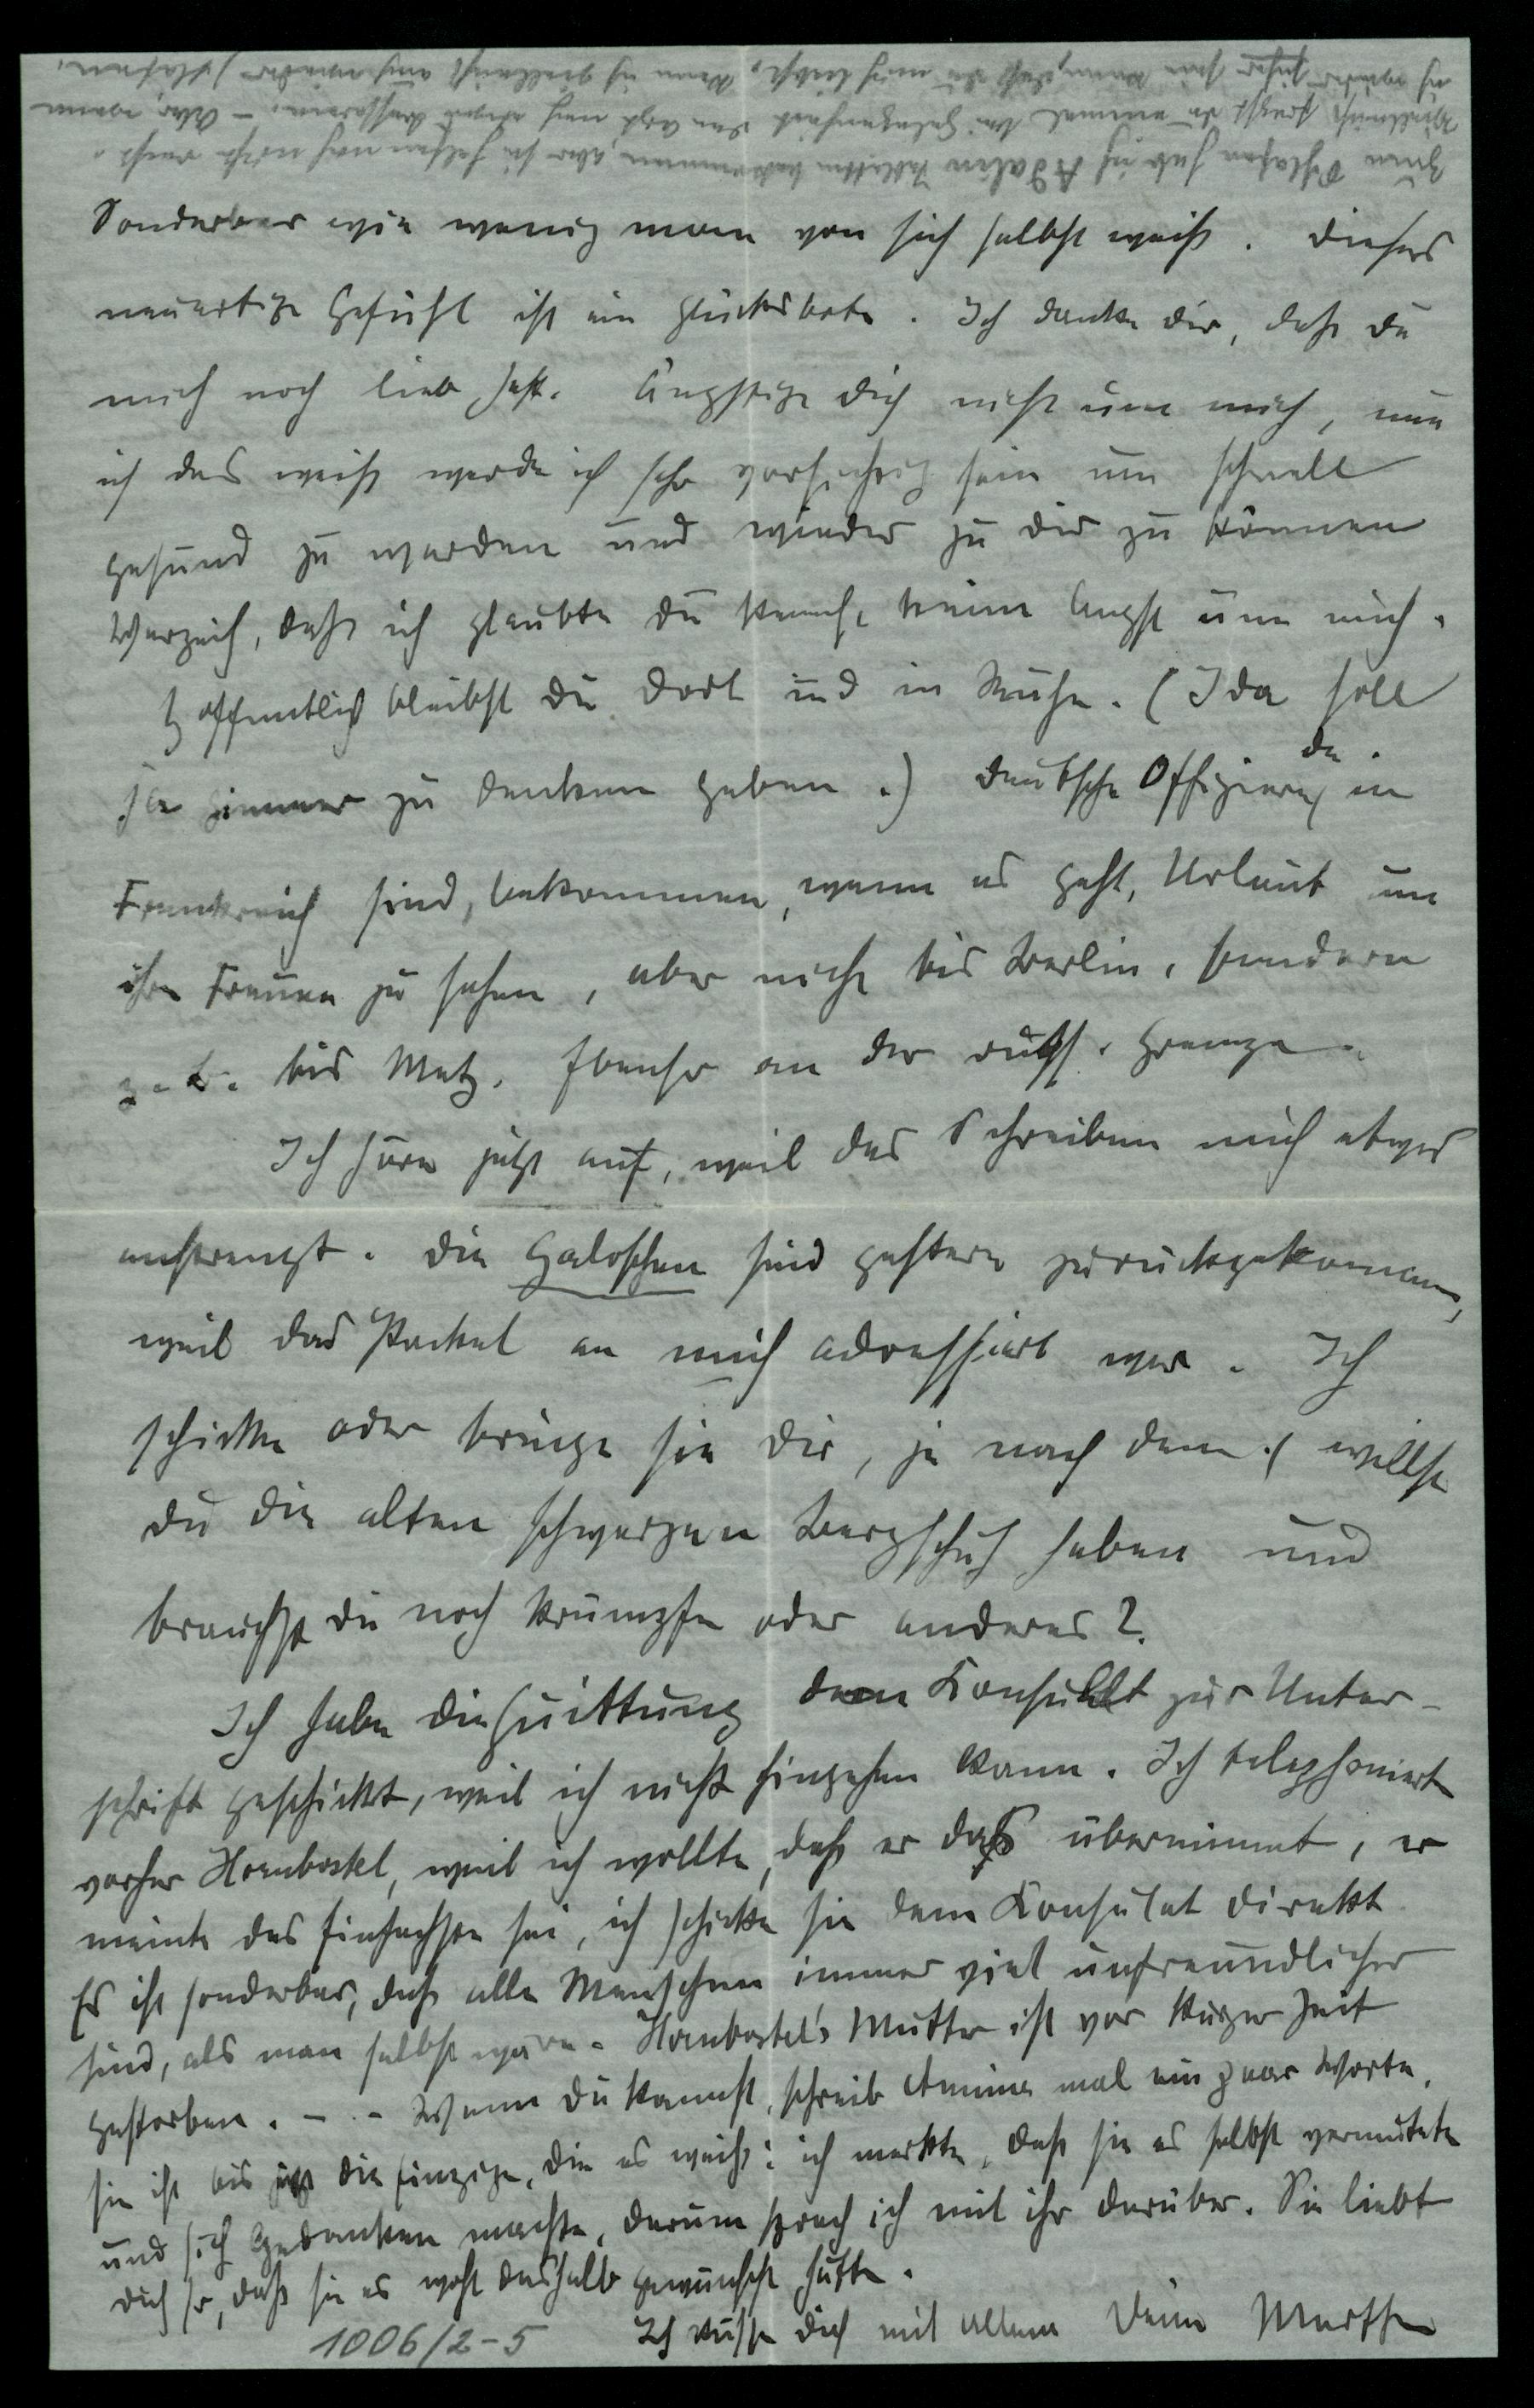 Sonderbar wie wenig man von sich selbst weiß. Dieses
neuartige Gefühl ist ein Glücksbote. Ich danke dir, daß du
mich noch lieb hast. Ängstige dich nicht um mich, nun
ich das weiß werde ich sehr vorsichtig sein um schnell
gesund zu werden und wieder zu dir zu können
Verzeih, daß ich glaubte du kennst keine Angst um mich.
Hoffentlich bleibst du dort und in Ruhe. (Ida soll
ja immer zu denken geben.) Deutsche Offiziere, die in
Frankreich sind, bekommen, wenn es geht, Urlaub um
ihre Frauen zu sehen, aber nicht bis Berlin, sondern
z. b. bis Metz. Ebenso an der russ. Grenze.
Ich höre jetzt auf, weil das Schreiben mich etwas
anstrengt. Die Galoschen sind gestern zurückgekommen,
weil das Packet an mich adressiert war. Ich
schicke oder bringe sie dir, je nach dem. willst
du die alten schwarzen Bergschuh haben und
brauchst du noch Strümpfe oder anderes?
Ich habe die Quittung dem Konsulat zur Unter-
schrift geschickt, weil ich nicht hingehen kann. Ich telephonierte
vorher Hornbostel, weil ich wollte, daß er das übernimmt, er
meinte das Einfachste sei, ich schicke sie dem Konsulat direkt
Es ist sonderbar, daß alle Menschen immer viel unfreundlicher
sind, als man selbst wäre. Hornbostel's Mutter ist vor kurzer Zeit
gestorben. - . - Wenn du kannst, schreib Annina mal ein paar Worte,
sie ist bis jetzt die Einzige, die es weiß: ich merkte, daß sie es selbst vermutete
und sich Gedanken machte, darum sprach ich mit ihr darüber. Sie liebt
dich so, daß sie es wohl deshalb gewünscht hätte.
Ich küsse dich mit Allem Deine Marthe
1006/2-5
Zum Schlafen hab ich Adalin Tabletten bekommen, aber sie helfen noch nicht recht.
Vielleicht fragst du einmal bei Gelegenheit den Arzt nach etwas Besserem. - Aber wenn
ich wieder sicher sein kann, daß du mich liebst, kann ich vielleicht auch wieder schlafen.